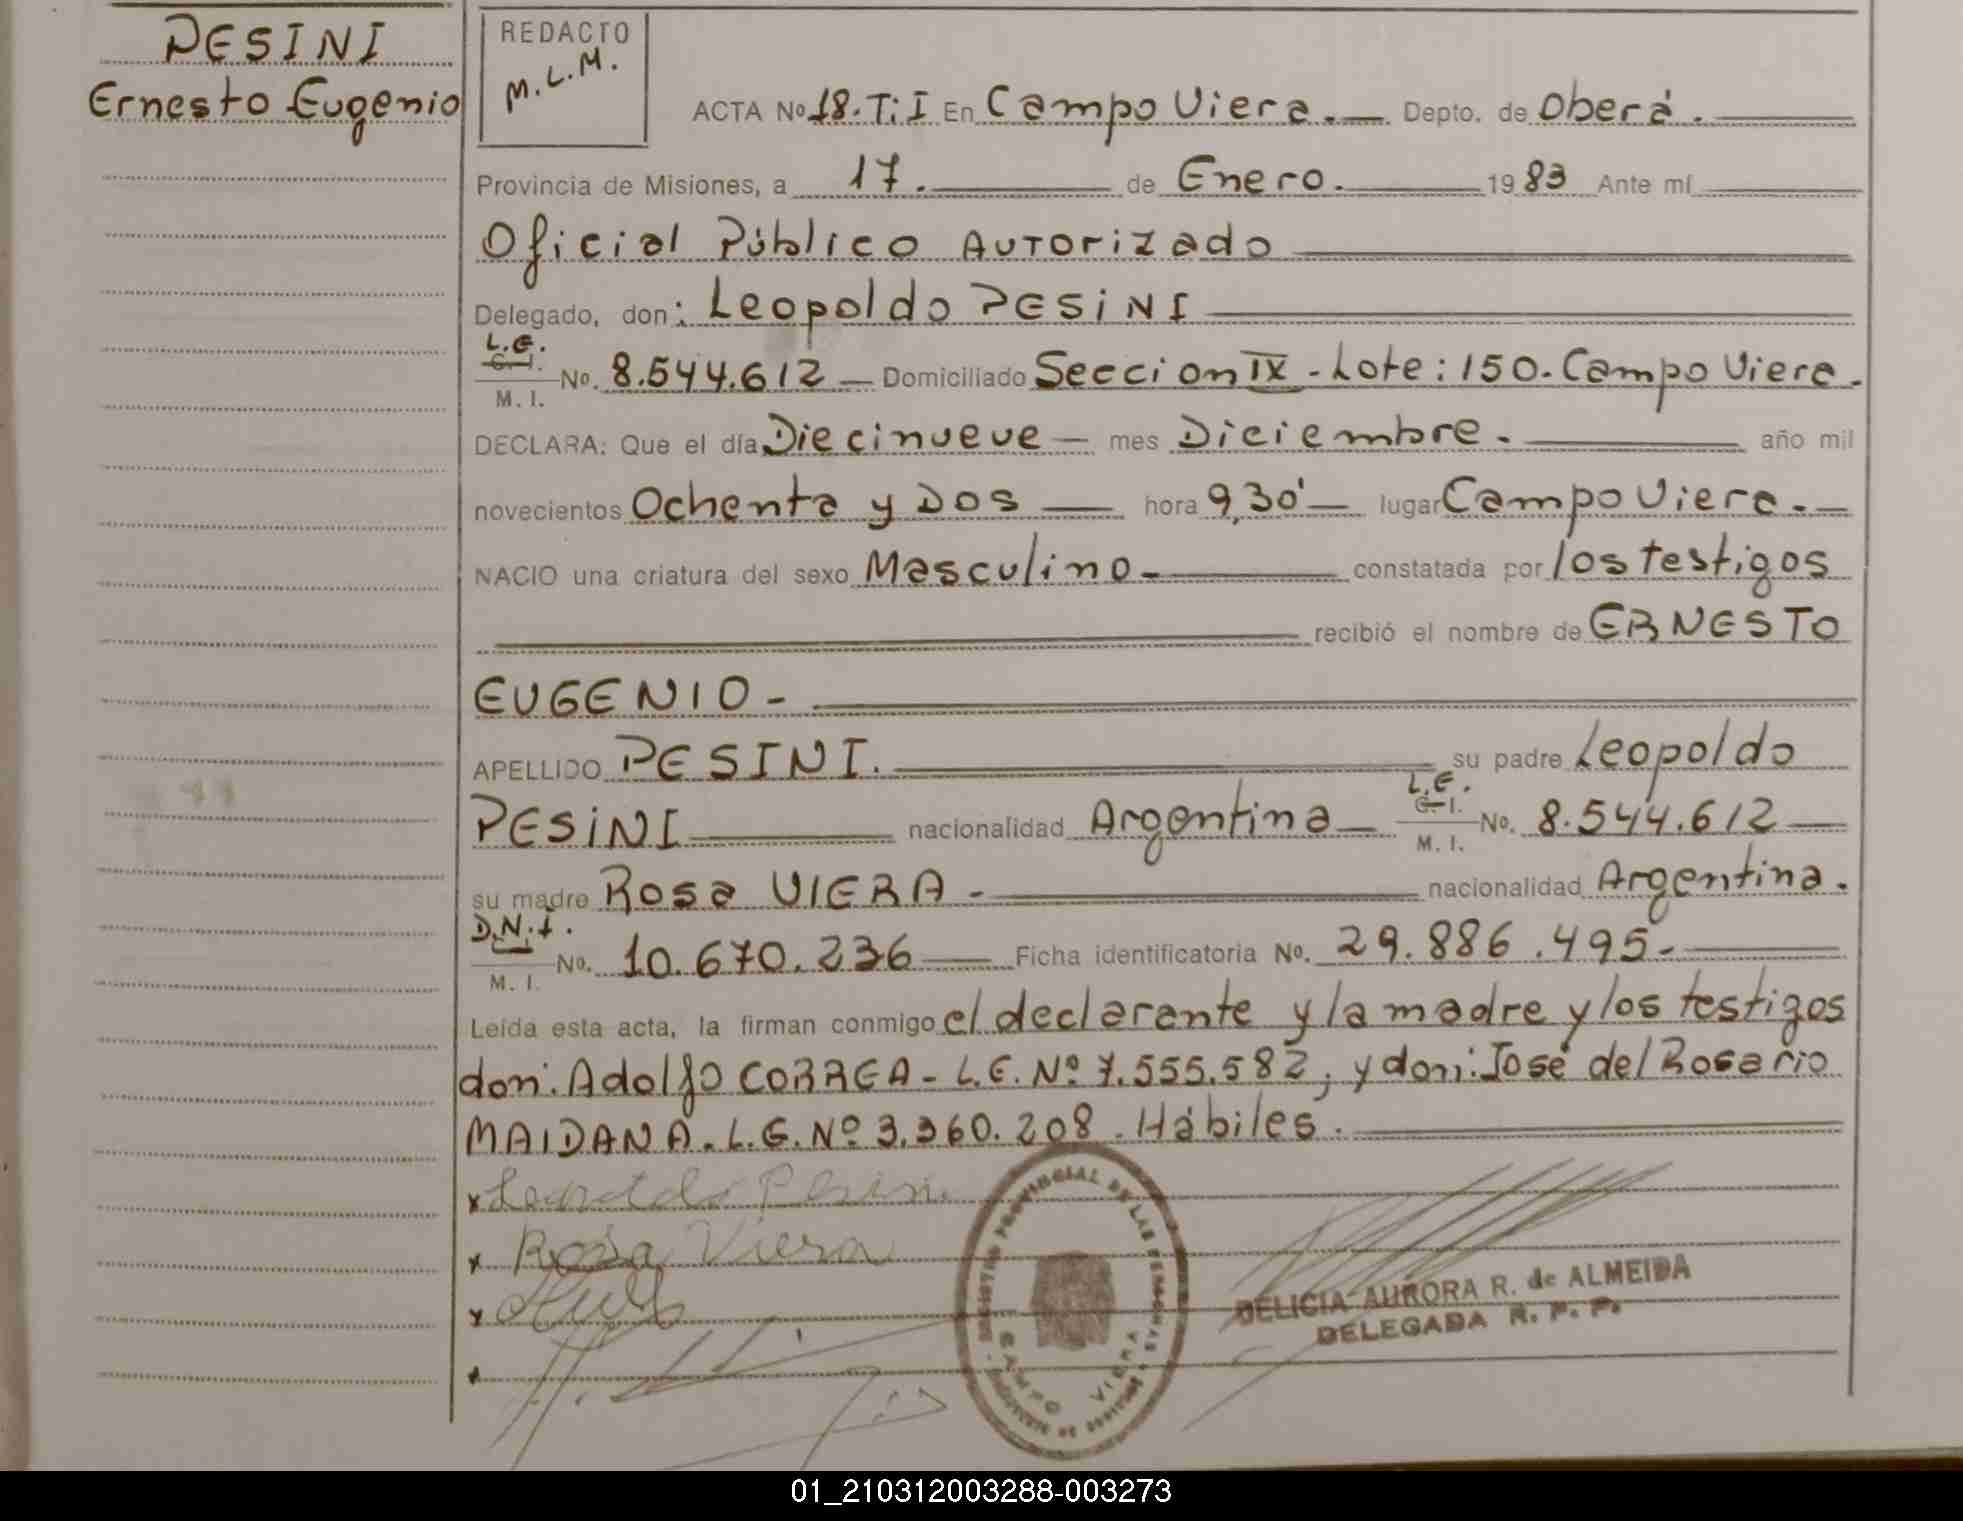 PESINI
Ernesto Eugenio
REDACTO
M.L.M.
ACTA No 18. T: I En Campo Viera. Depto. de Oberá.
Provincia de Misiones, a 17. de Enero. 1983 Ante mí
Oficial Público AUTORIZADO
Delegado, don: Leopoldo PESINI
L.E.
C. I.
M. I. No. 8.544.612 Domiciliado Seccion IX - Lote: 150. Campo Viera.
DECLARA: Que el día Diecinueve mes Diciembre. año mil
novecientos Ochenta y DOS hora 9,30' lugar Campo Viera.
NACIO una criatura del sexo Masculino constatada por los testigos
recibió el nombre de ERNESTO
EUGENIO
APELLIDO PESINI. su padre Leopoldo
PESINI nacionalidad Argentina L.E. C. I. M. I. No. 8.544.612
su madre Rosa VIERA nacionalidad Argentina.
D.N.I.
M. I. No. 10.670.236 Ficha identificatoria No. 29.886.495
Leída esta acta, la firman conmigo el declarante y la madre y los testigos
don: Adolfo CORREA - L.E. Nº 7.555.582, y don: José del Rosario
MAIDANA. L.E. Nº 3.360.208. Hábiles.
x Leopoldo Pesini
x Rosa Viera
x
x
REGISTRO PROVINCIAL DE LAS PERSONAS
CAMPO VIERA
DELICIA AURORA R. de ALMEIDA
DELEGADA R. P. P.
01_210312003288-003273